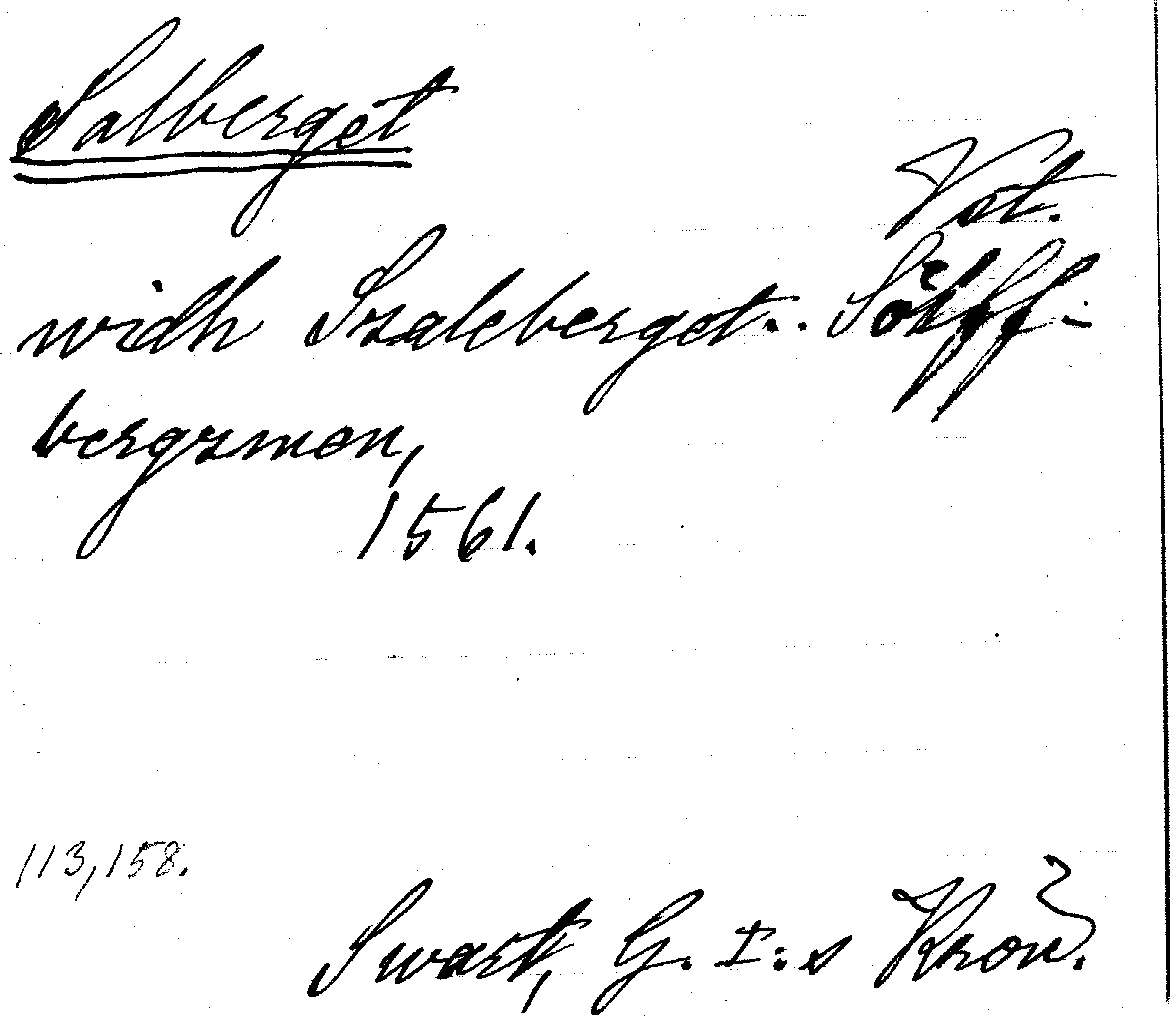 Salberget
Vst.
widh Szaleberget.. Sölff-
bergzmen,
1561.
113,158.
Swart, G. I:s Krön.